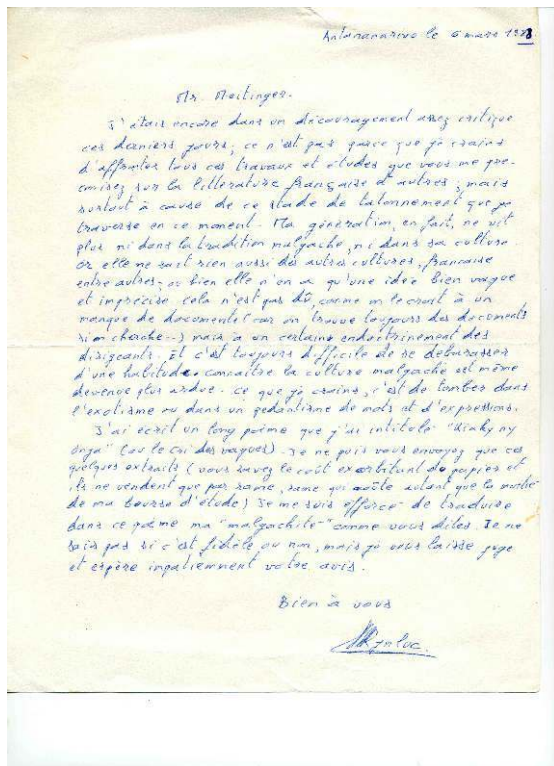 Antananarivo le 6 mars 1978.
Mr. Meitinger.
J'étais encore dans un découragement assez critique
ces derniers jours, ce n'est pas parce que je crains
d'affronter tous ces travaux et études que vous me pro-
mîsez sur la littérature française et autres, mais
surtout à cause de ce stade de tatonnement que je
traverse en ce moment. Ma génération, en fait, ne vit
plus ni dans la tradition malgache, ni dans sa culture
or elle ne sait rien aussi des autres cultures, francaise
entre autres; ou bien elle n'en a qu'une idée bien vague
et imprécise. cela n'est pas dû, comme on le croit à un
manque de documents (car on trouve toujours des documents
si on cherche..) mais à un certain endoctrinement des
dirigeants. Et c'est toujours difficile de se débarasser
d'une habitude. connaître la culture malgache est même
devenue plus ardue. ce que je crains, c'est de tomber dans
l'exotisme ou dans un pedantisme de mots et d'expressions.
J'ai écrit un long poème que j'ai intitulé "Kiaky ny
onja" (ou le cri des vagues). Je ne puis vous envoyez que ces
quelques extraits (vous savez le coût exorbitant de papiers et
ils ne vendent que par rame, rame qui coûte autant que la moitié
de ma bourse d'étude) Je me suis efforcé de traduire
dans ce poème ma "malgachité" comme vous dites. Je ne
sais pas si c'est fidèle ou non, mais je vous laisse juge
et espère impatiemment votre avis.
Bien à vous